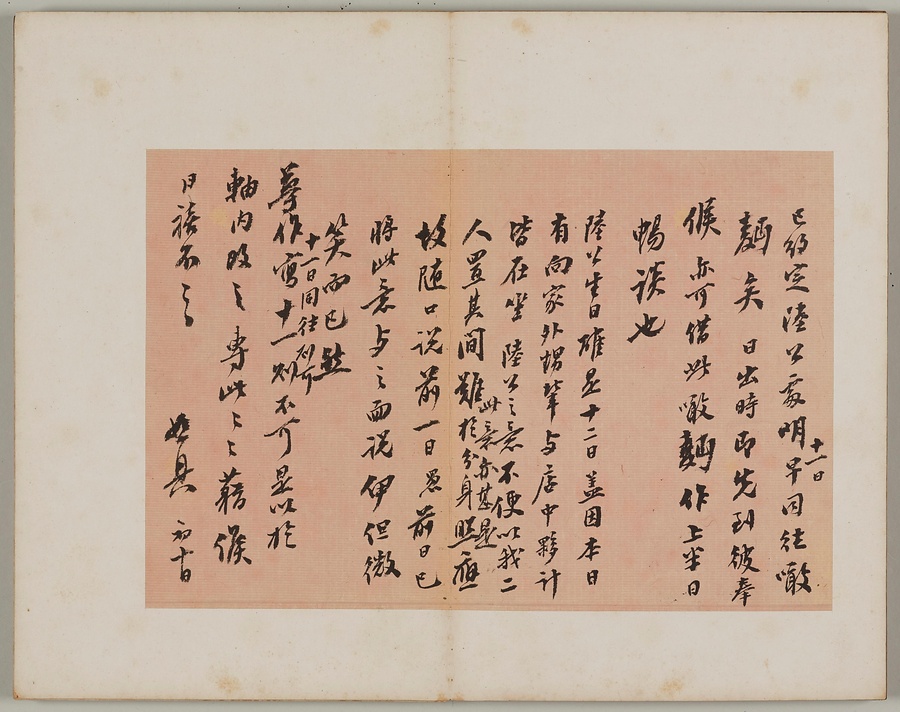 已約定陸公處明早同往噉
十一日
麵矣日出時即先到彼奉
候亦可借此噉麵作上半日
暢談也
陸公生日確是十二日蓋因本日
有向家外甥輩与店中夥計
皆在坐陸公之意不便以我二
人置其間難於分身照應
此意亦甚是
故隨口說前一日愚前日已
將此意与之面說伊但微
笑而已
尊作寫十一則不可是以於
十一日同往則可
軸內改之專此藉候
日禧不
初十日